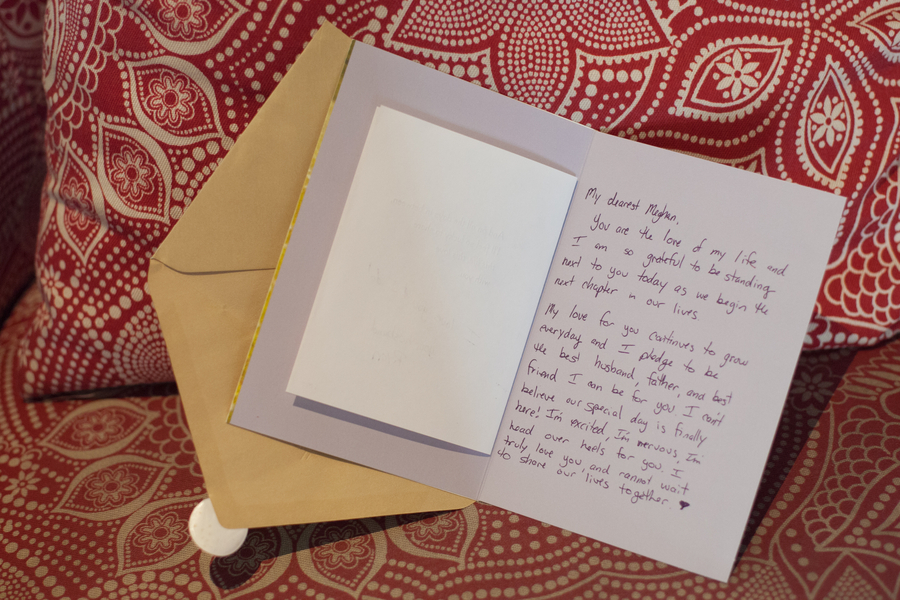 My dearest Meghan,
You are the love of my life and
I am so grateful to be standing
next to you today as we begin the
next chapter in our lives
My love for you continues to grow
everyday and I pledge to be
the best husband, father, and best
friend I can be for you. I can't
believe our special day is finally
here! I'm excited, I'm nervous, I'm
head over heels for you. I
truly love you, and cannot wait
to share our lives together ♥